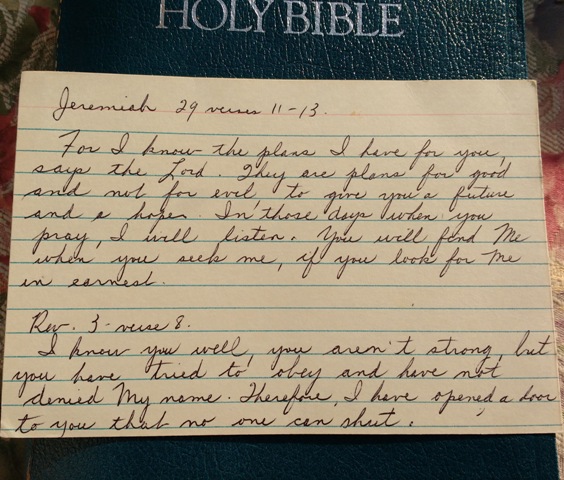 HOLY BIBLE
Jeremiah 29 verses 11-13.
For I know the plans I have for you,
says the Lord. They are plans for good
and not for evil, to give you a future
and a hope. In those days when you
pray, I will listen. You will find Me
when you seek me, if you look for Me
in earnest.
Rev. 3 - verse 8.
I know you well, you aren't strong, but
you have tried to obey and have not
denied My name. Therefore, I have opened a door
to you that no one can shut.